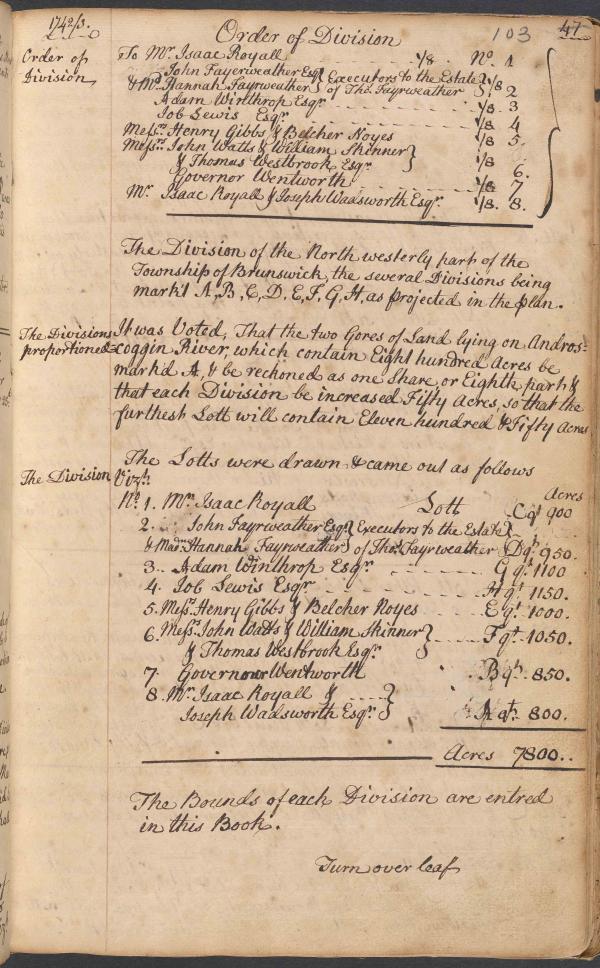 1742/3.
Order of Division
103
47
Order of
Division
To Mr. Isaac Royall 1/8 No. 1
John Fayerweather Esqr } Executors to the Estate } 1/8
& Md. Hannah Fayrweather } of Tho. Fayrweather } 2
Adam Winthrop Esqr 1/8. 3
Job Lewis Esqr 1/8 4
Messrs. Henry Gibbs & Belcher Noyes 1/8 5.
Messrs. John Watts & William Skinner } 1/8
& Thomas Westbrook Esqr. } 6.
Governor Wentworth 1/8 7
Mr. Isaac Royall & Joseph Wadsworth Esqr. 1/8. 8.
The Division of the North westerly part of the
Township of Brunswick, the several Divisions being
mark'd A, B, C, D, E, F, G, H, as projected in the plan.
The Divisions
proportioned
It was Voted, That the two Gores of Land lying on Andros=
=coggin River, which contain Eight hundred Acres be
mark'd A, & be reckoned as one Share, or Eighth part &
that each Division be increased Fifty Acres, so that the
furthest Lott will contain Eleven hundred & Fifty Acres
The Division
The Lotts were drawn & came out as follows
Vizt.
Acres
No. 1. Mr. Isaac Royall Lott C qt 900
2. John Fayrweather Esqr } Executors to the Estate }
& Madm. Hannah Fayrweather } of Thos. Fayrweather } D qt. 950.
3. Adam Winthrop Esqr G qt 1100
4. Job Lewis Esqr H qt 1150.
5. Messrs. Henry Gibbs & Belcher Noyes E qt 1000.
6. Messrs. John Watts & William Skinner } F qt. 1050.
& Thomas Westbrook Esqr. }
7. Governour Wentworth B qt. 850.
8. Mr. Isaac Royall & }
Joseph Wadsworth Esqr. } A qt. 800.
Acres 7800..
The Bounds of each Division are entred
in this Book.
Turn over leaf